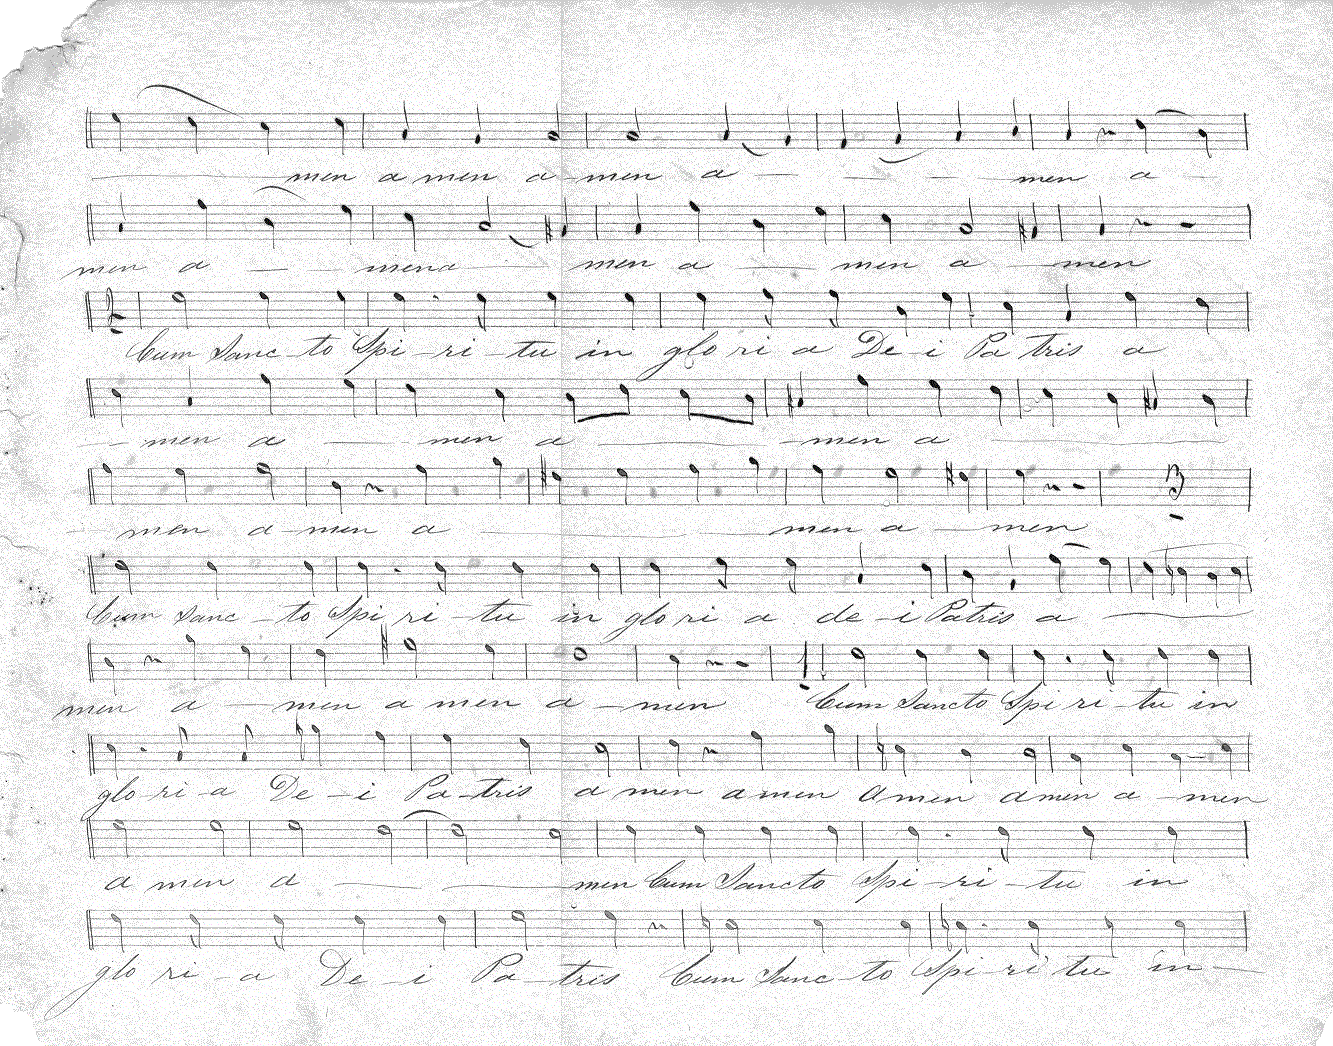 men a men a men a men a
men a mena men a men a men
2
Cum Sanc-to Spi-ri-tu in glo ri a De-i Pa tris a
men a men a men a
men a-men a men a-men
3
Cum Sanc-to Spi ri-tu in glo ri a de-i Patris a
men a men a men a-men Cum Sancto Spi ri-tu in
glo-ri-a De-i Pa-tris a men a men Amen a men a-men
a men a men Cum Sancto Spi-ri-tu in
glo ri-a De-i Pa-tris Cum Sanc-to Spi-ri tu in